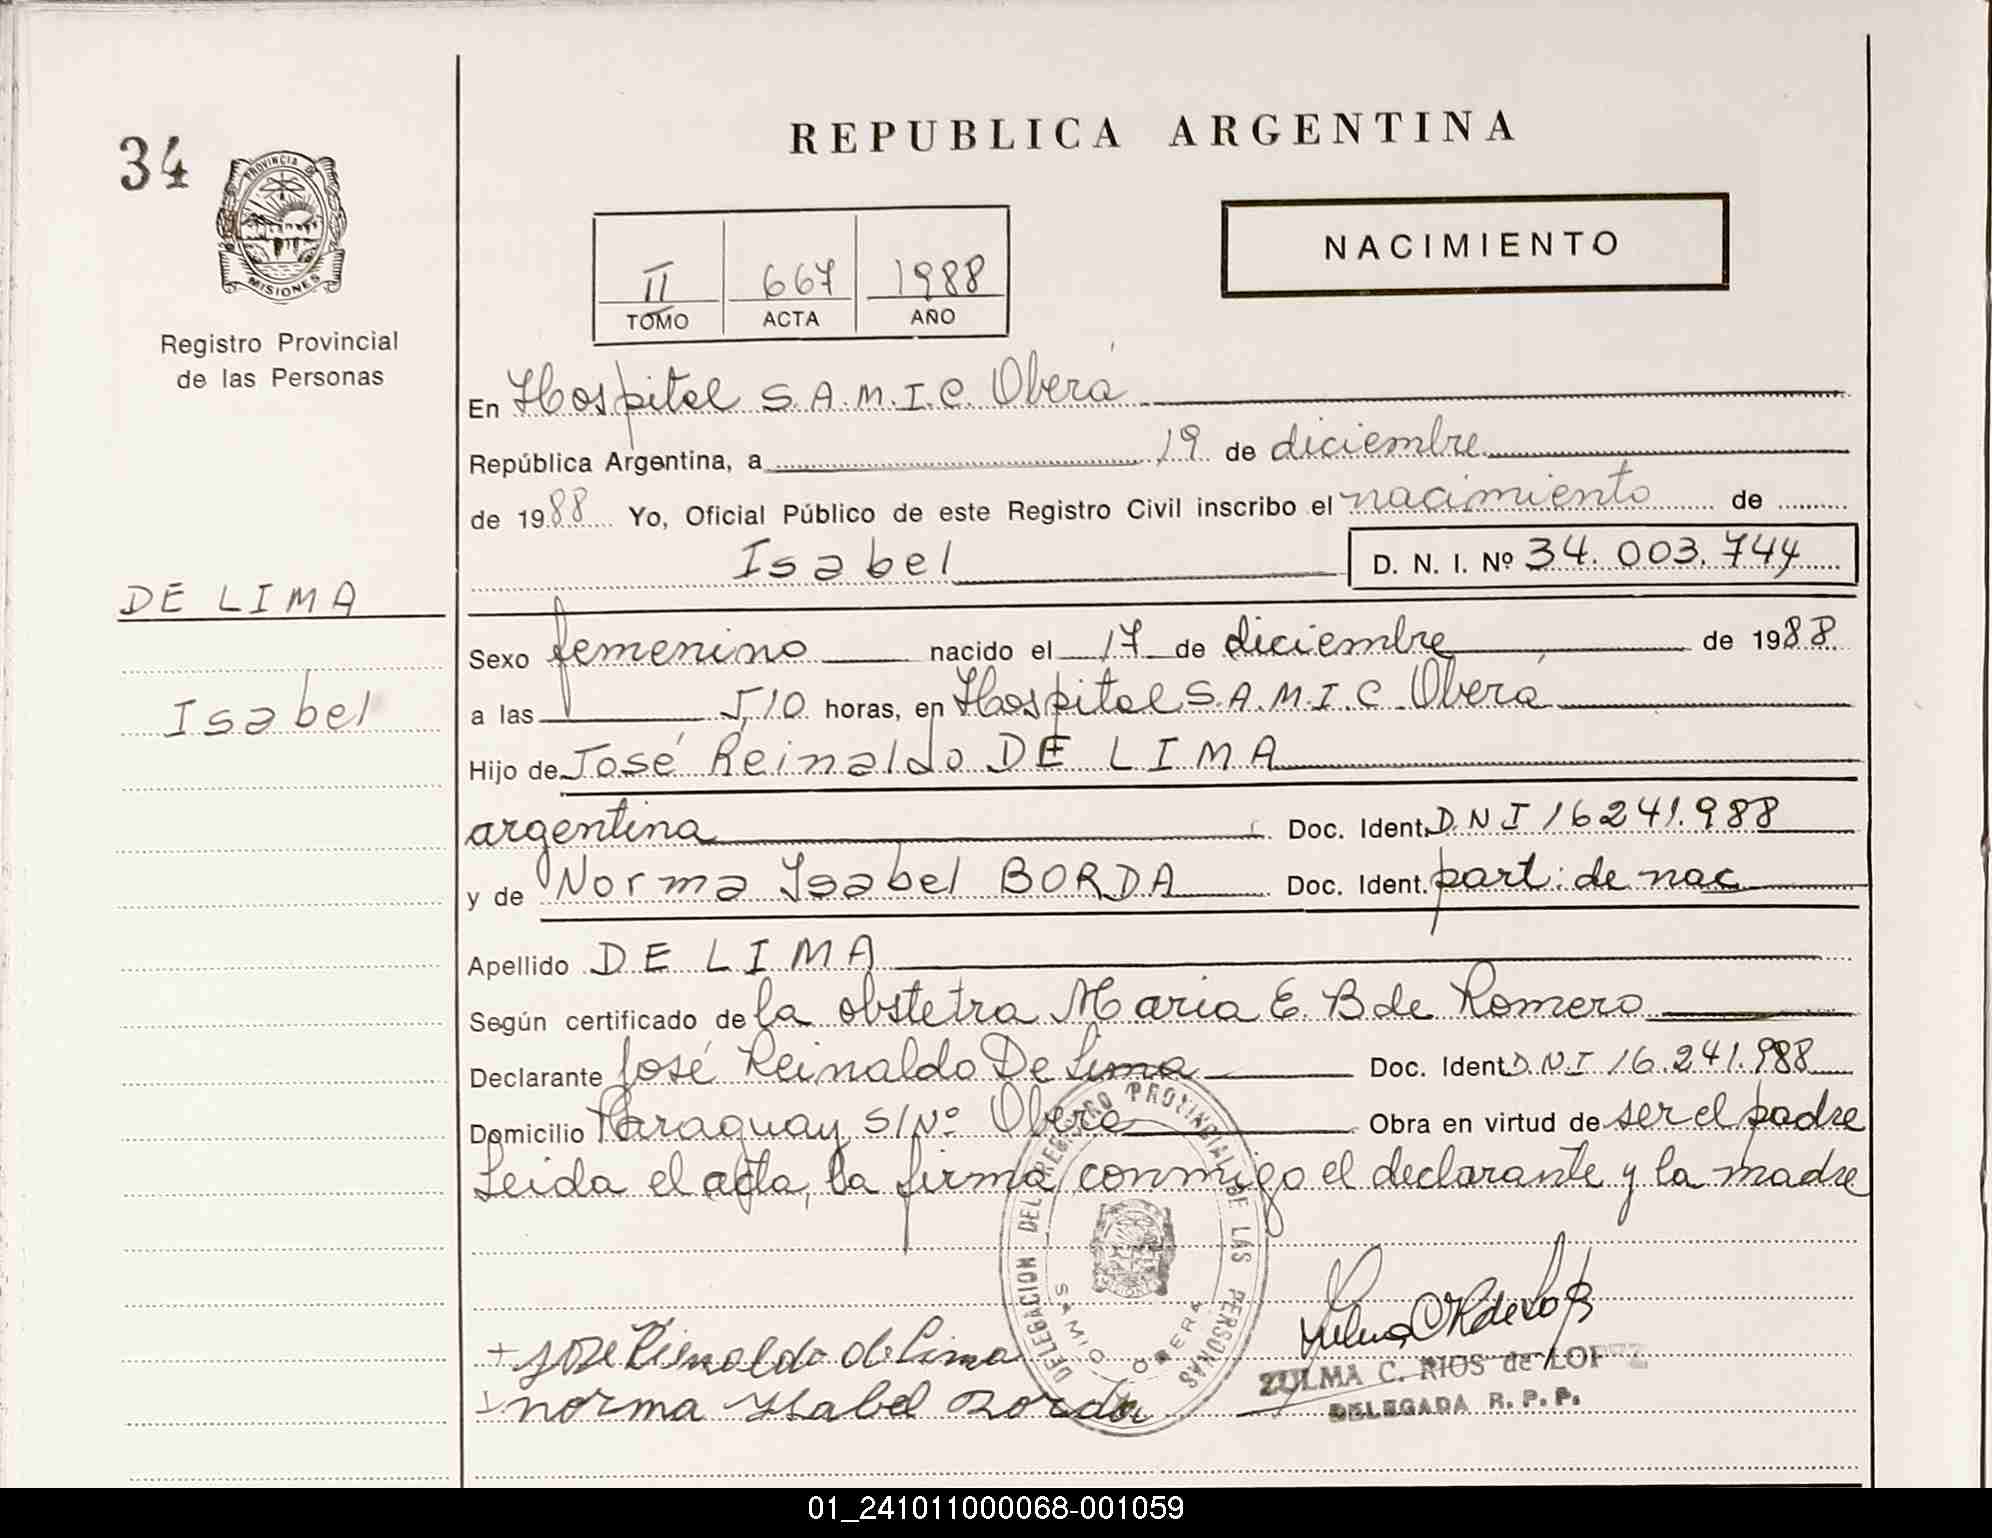 REPUBLICA ARGENTINA
34
PROVINCIA DE
MISIONES
NACIMIENTO
II 667 1988
TOMO ACTA AÑO
Registro Provincial
de las Personas
En Hospital S.A.M.I.C. Oberá
República Argentina, a 19 de diciembre
de 1988 Yo, Oficial Público de este Registro Civil inscribo el nacimiento de
Isabel D. N. I. Nº 34.003.744
DE LIMA
Isabel
Sexo femenino nacido el 17 de diciembre de 1988
a las 5,10 horas, en Hospital S.A.M.I.C. Oberá
Hijo de José Reinaldo DE LIMA
argentina Doc. Ident. D N I 16241.988
y de Norma Isabel BORDA Doc. Ident. part. de nac
Apellido DE LIMA
Según certificado de la obstetra Maria E. B de Romero
Declarante José Reinaldo De Lima Doc. Ident. D.N.I 16.241.988
Domicilio Paraguay S/Nº Oberá Obra en virtud de ser el padre
Leida el acta, la firma conmigo el declarante y la madre
DELEGACION DEL REGISTRO PROVINCIAL DE LAS PERSONAS
SAMIC OBERA
+ jose Rienaldo de Lima
+ norma Isabel Borda
ZULMA C. RIOS de LOPEZ
DELEGADA R. P. P.
01_241011000068-001059